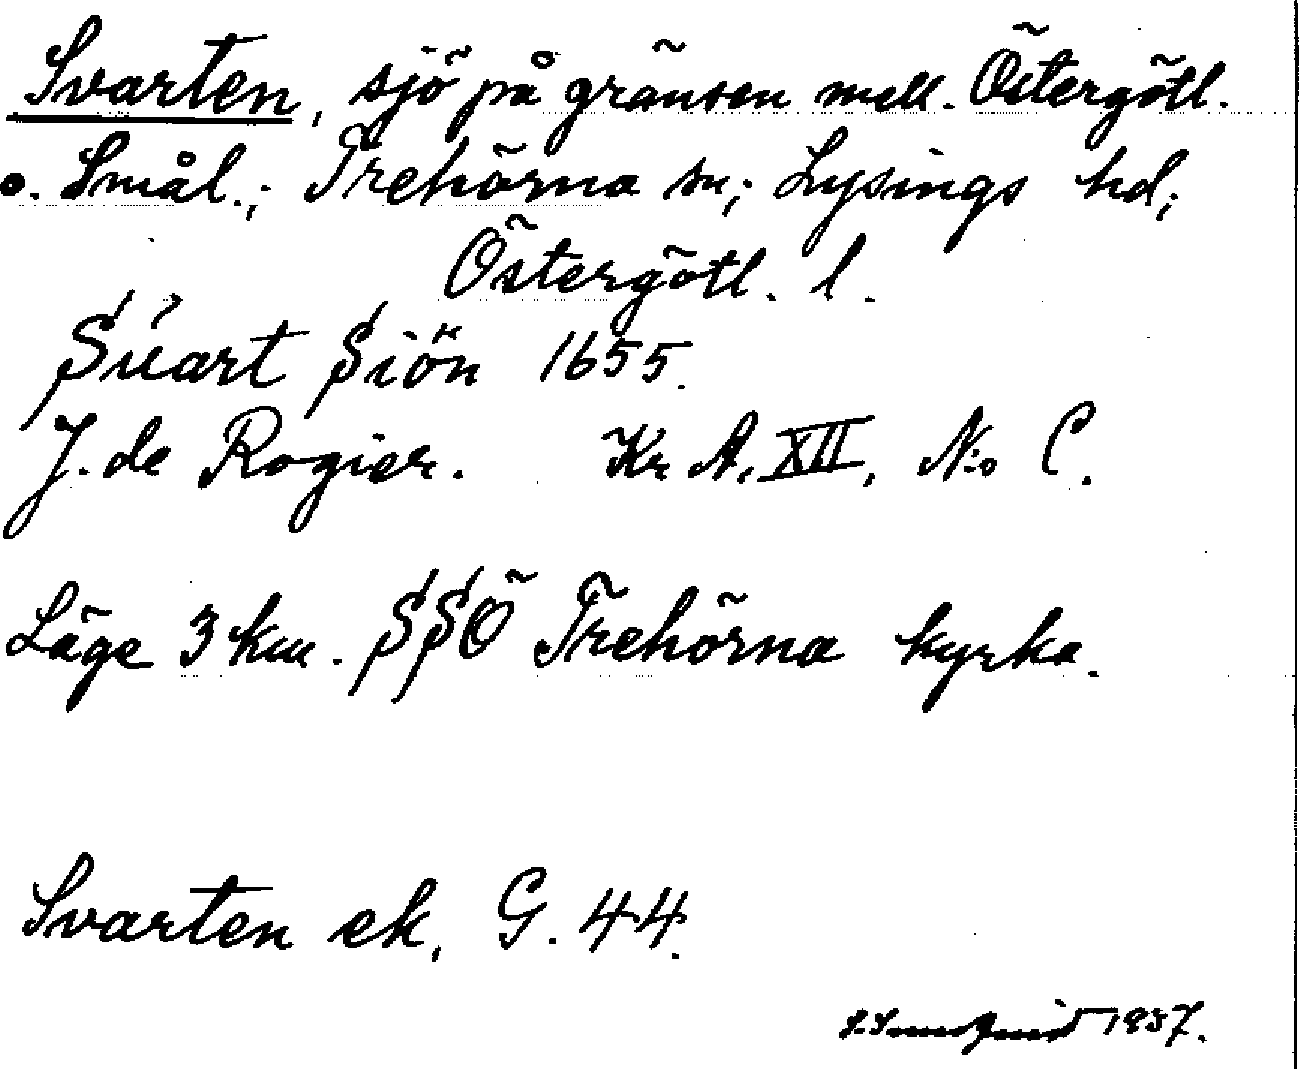 Svarten, sjö på gränsen mell. Östergötl.
o. Smål.; Trehörna sn; Lysings hd;
Östergötl. l.
Súart Siön 1655.
J. de Rogier. Kr A. XII, N:o C.
Läge 3 km. SSÖ Trehörna kyrka.
Svarten ek, G. 44.
1937.